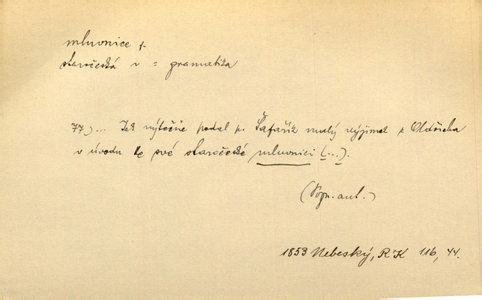 mluvnice f.
staročeská v = gramatika
77) ... Též výtečně podal p. Šafařík malý výjimek z Oldřicha
v úvodu ke své staročeské mluvnici (...).
(Pozn. aut.)
1853 Nebeský, RK 116, 44.